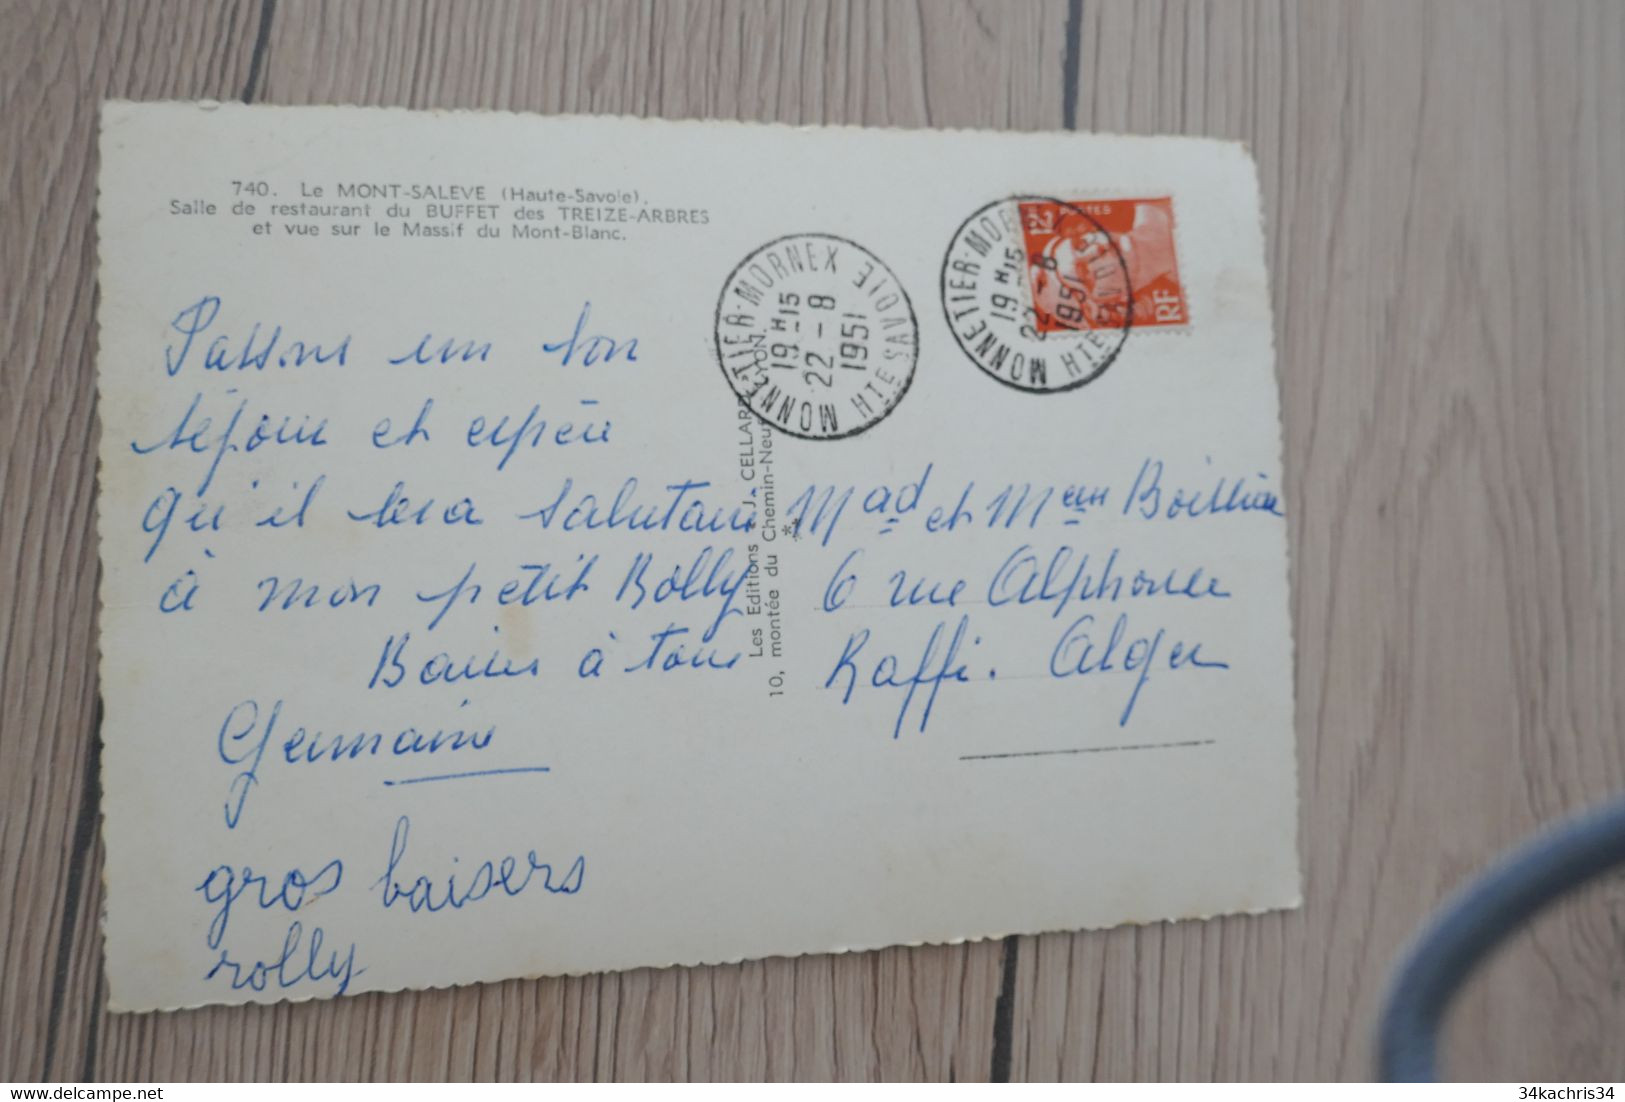 740. Le MONT-SALEVE (Haute-Savoie).
Salle de restaurant du BUFFET des TREIZE-ARBRES
et vue sur le Massif du Mont-Blanc.
Passons un bon
séjour et espère
qu'il sera salutaire
à mon petit Rolly
Baisers à tous
Germaine
gros baisers
rolly
Les Editions J. CELLARD LYON.
10, montée du Chemin-Neuf
MONNETIER-MORNEX HTE SAVOIE
19 H 15
22-8
1951
MONNETIER-MORNEX HTE SAVOIE
19 H 15
22-8
1951
12F POSTES
RF
Mad et Meur
6 rue Alphonse
Raffi. Alger
34kachris34